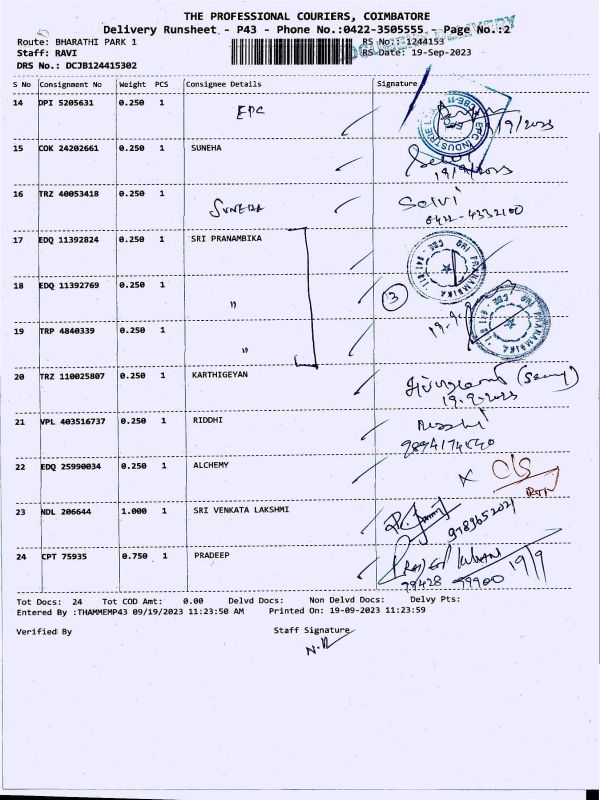 THE PROFESSIONAL COURIERS, COIMBATORE
Delivery Runsheet - P43 - Phone No.:0422-3505555 - Page No.:2
Route: BHARATHI PARK 1 RS No.: 1244153
Staff: RAVI RS Date: 19-Sep-2023
DRS No.: DCJB124415302
S No Consignment No Weight PCS Consignee Details Signature
14 DPI 5205631 0.250 1 EPC
15 COK 24202661 0.250 1 SUNEHA
19/9/2023
16 TRZ 40053418 0.250 1 SUNEHA Selvi
0422-4332100
17 EDQ 11392824 0.250 1 SRI PRANAMBIKA
18 EDQ 11392769 0.250 1 " 3
19 TRP 4840339 0.250 1 "
20 TRZ 110025807 0.250 1 KARTHIGEYAN
19.9.2023
21 VPL 403516737 0.250 1 RIDDHI
22 EDQ 25990034 0.250 1 ALCHEMY
23 NDL 206644 1.000 1 SRI VENKATA LAKSHMI
9789652021
24 CPT 75935 0.750 1 PRADEEP 19/9
79428 99900
Tot Docs: 24 Tot COD Amt: 0.00 Delvd Docs: Non Delvd Docs: Delvy Pts:
Entered By :THAMMEMP43 09/19/2023 11:23:50 AM Printed On: 19-09-2023 11:23:59
Verified By Staff Signature